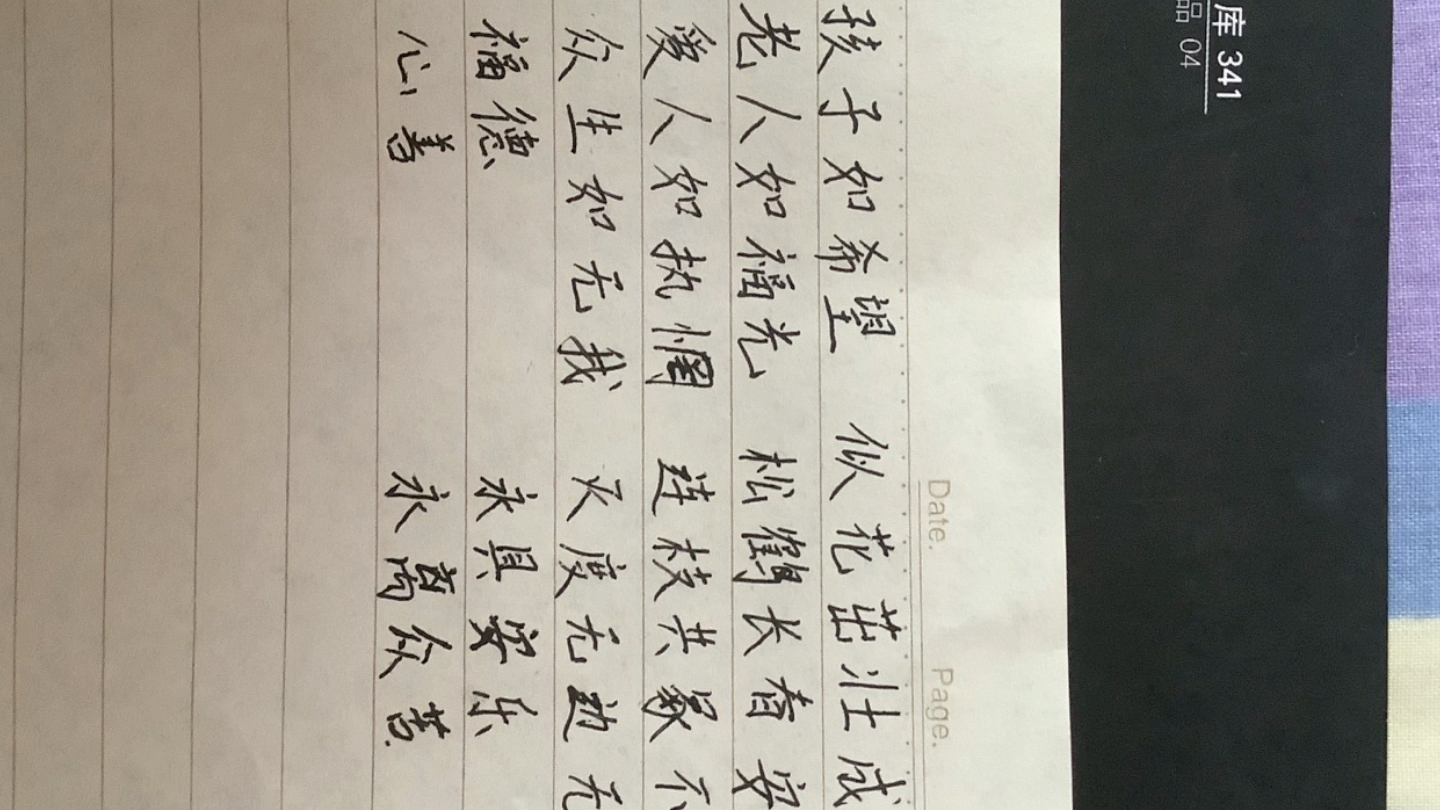 库 341
品 04
Date. Page.
孩子如希望 似花茁壮成
老人如福光 松鹤长春安
爱人如执惘 连枝共冢不
众生如无我 灭度无边无
福德 永具安乐
心善 永离众苦.